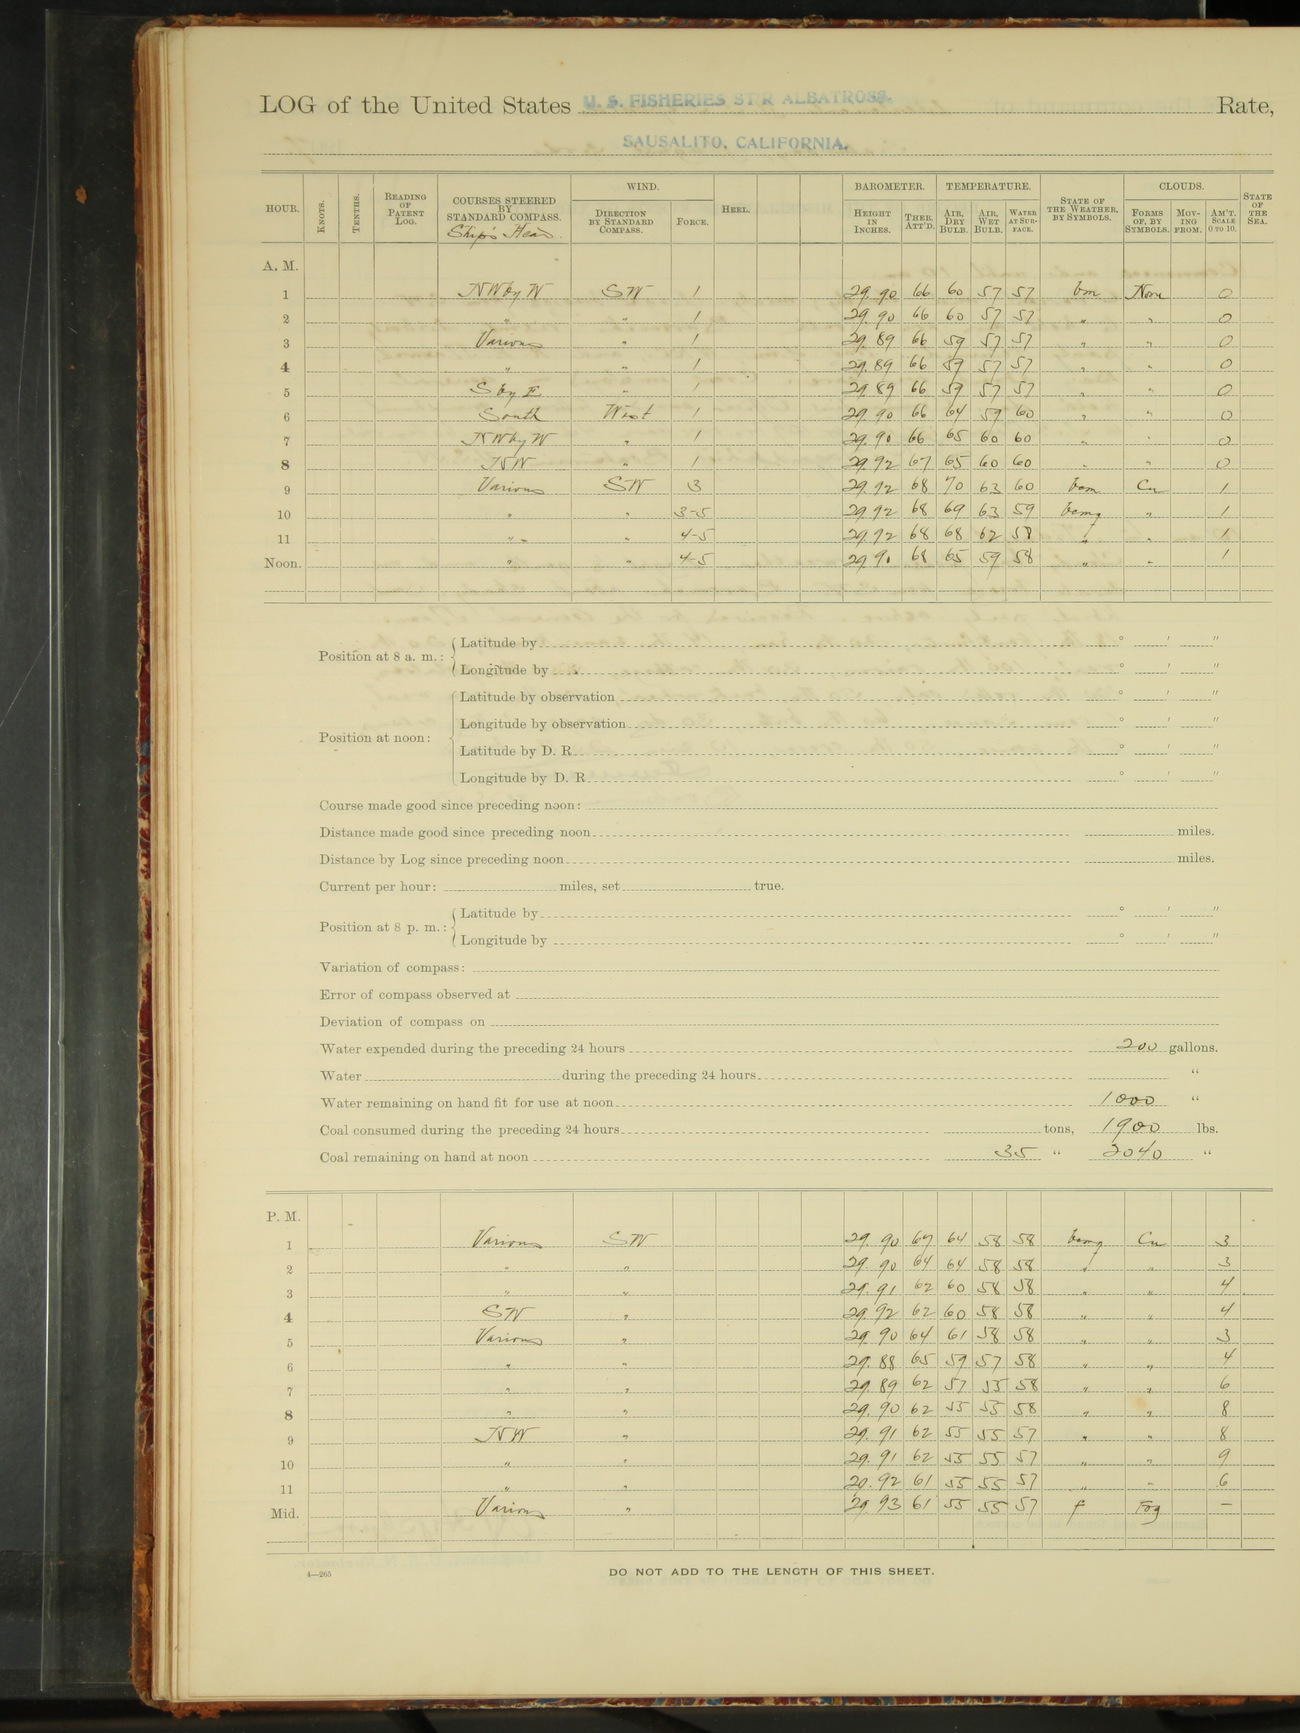 LOG of the United States U. S. FISHERIES ST'R ALBATROSS. Rate,
SAUSALITO, CALIFORNIA.
HOUR. KNOTS. TENTHS. READING OF PATENT LOG. COURSES STEERED BY STANDARD COMPASS. Ship's Head WIND. DIRECTION BY STANDARD COMPASS. FORCE. HEEL. BAROMETER. HEIGHT IN INCHES. THER. ATT'D. TEMPERATURE. AIR, DRY BULB. AIR, WET BULB. WATER AT SURFACE. STATE OF THE WEATHER, BY SYMBOLS. CLOUDS. FORMS OF, BY SYMBOLS. MOVING FROM. AM'T. SCALE 0 TO 10. STATE OF THE SEA.
A. M.
1 NW by W SW 1 29.90 66 60 57 57 bm None 0
2 " " 1 29.90 66 60 57 57 " " 0
3 Various " 1 29.89 66 59 57 57 " " 0
4 " " 1 29.89 66 59 57 57 " " 0
5 S by E " 1 29.89 66 59 57 57 " " 0
6 South West 1 29.90 66 64 59 60 " " 0
7 NW by W " 1 29.90 66 65 60 60 " " 0
8 NW " 1 29.92 67 65 60 60 " " 0
9 Various SW 3 29.92 68 70 63 60 bcm Cu 1
10 " " 3-5 29.92 68 69 63 59 bcmq " 1
11 " " 4-5 29.92 68 68 62 58 " " 1
Noon. " " 4-5 29.90 68 65 59 58 " " 1
Position at 8 a. m.: Latitude by ° ' "
Longitude by ° ' "
Position at noon: Latitude by observation ° ' "
Longitude by observation ° ' "
Latitude by D. R. ° ' "
Longitude by D. R. ° ' "
Course made good since preceding noon:
Distance made good since preceding noon miles.
Distance by Log since preceding noon miles.
Current per hour: miles, set true.
Position at 8 p. m.: Latitude by ° ' "
Longitude by ° ' "
Variation of compass:
Error of compass observed at
Deviation of compass on
Water expended during the preceding 24 hours 200 gallons.
Water during the preceding 24 hours "
Water remaining on hand fit for use at noon 1000 "
Coal consumed during the preceding 24 hours tons, 1900 lbs.
Coal remaining on hand at noon 35 " 2040 "
P. M.
1 Various SW 29.90 67 64 58 58 bcmq Cu 3
2 " " 29.90 64 64 58 58 " " 3
3 " " 29.91 62 60 58 58 " " 4
4 SW " 29.92 62 60 58 58 " " 4
5 Various " 29.90 64 61 58 58 " " 3
6 " " 29.88 65 59 57 58 " " 4
7 " " 29.89 62 57 55 58 " " 6
8 " " 29.90 62 55 55 58 " " 8
9 NW " 29.91 62 55 55 57 " " 8
10 " " 29.91 62 55 55 57 " " 9
11 " " 29.92 61 55 55 57 " " 6
Mid. Various " 29.93 61 55 55 57 f Fog —
4—265
DO NOT ADD TO THE LENGTH OF THIS SHEET.